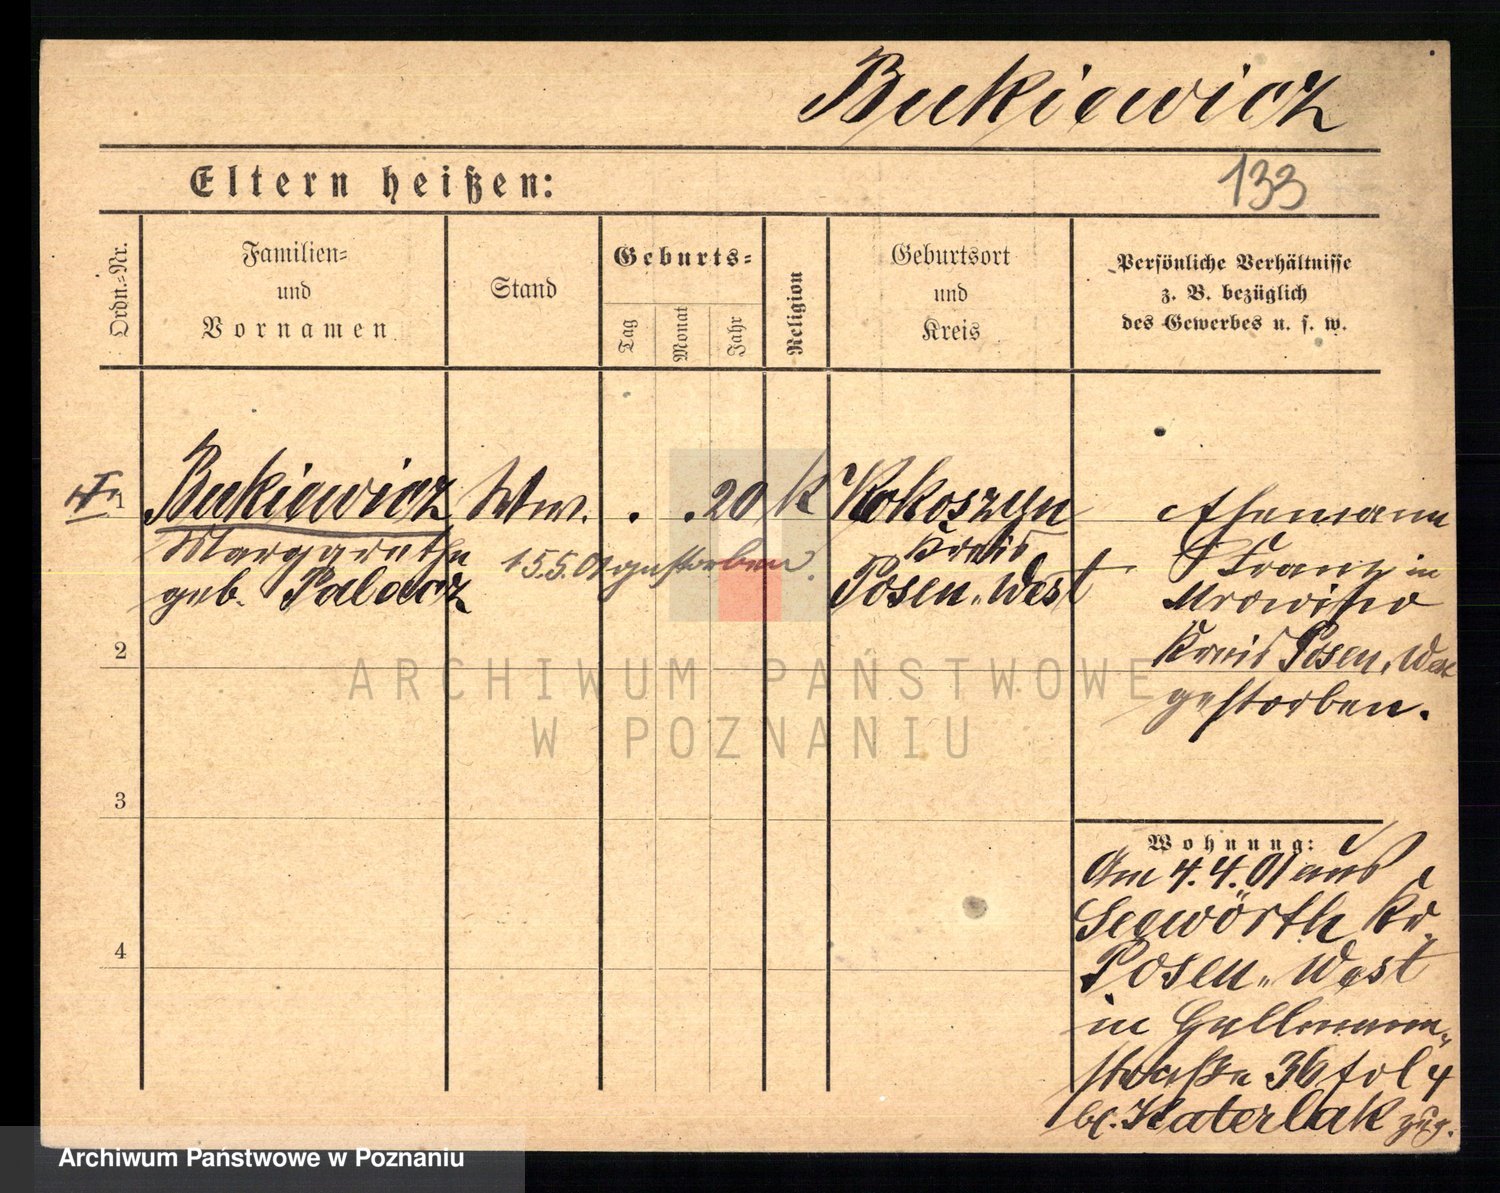 Bukiewicz
133
Eltern heißen:
Ordn.-Nr.
Familien-
und
Vornamen
Stand
Geburts-
Tag
Monat
Jahr
Religion
Geburtsort
und
Kreis
Persönliche Verhältnisse
z. B. bezüglich
des Gewerbes u. s. w.
1
Bukiewicz Ww. . . 20 K Kokoszyn
Margarethe
geb. Palacz
15.5.01 gestorben.
Kreis
Posen-West
Ehemann
Franz in
Mrowino
Kreis Posen-West
gestorben.
2
3
4
Wohnung:
Am 4.4.01 aus
Seewörth Kr.
Posen-West
in
straße 36 fol 4
bei Katerlak zug.
ARCHIWUM PAŃSTWOWE
W POZNANIU
Archiwum Państwowe w Poznaniu